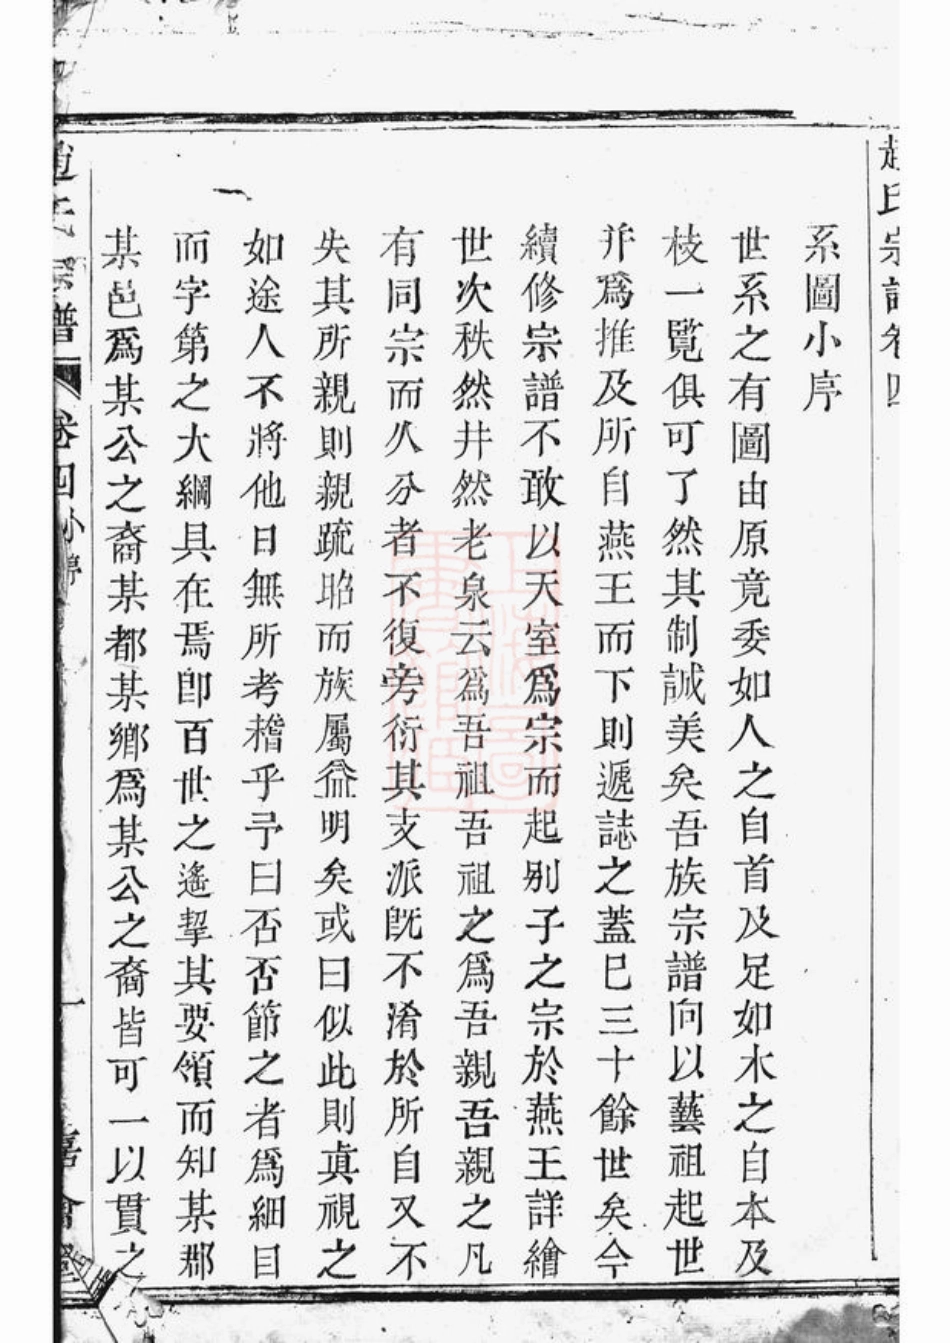 趙氏宗譜卷四
系圖小序
世系之有圖由原竟委如人之自首及足如木之自本及
枝一覽俱可了然其制誠美矣吾族宗譜向以藝祖起世
并爲推及所自燕王而下則遞誌之蓋巳三十餘世矣今
續修宗譜不敢以天室爲宗而起別子之宗於燕王詳繪
世次秩然井然老泉云爲吾祖吾祖之爲吾親吾親之凡
有同宗而久分者不復旁衍其支派旣不淆於所自又不
失其所親則親疏昭而族屬益明矣或曰似此則真視之
如途人不將他日無所考稽乎予曰否否節之者爲細目
而字第之大綱具在焉卽百世之遙挈其要領而知某郡
某邑爲某公之裔某都某鄉爲某公之裔皆可一以貫之
趙氏宗譜 卷四 小序 一 嘉會堂